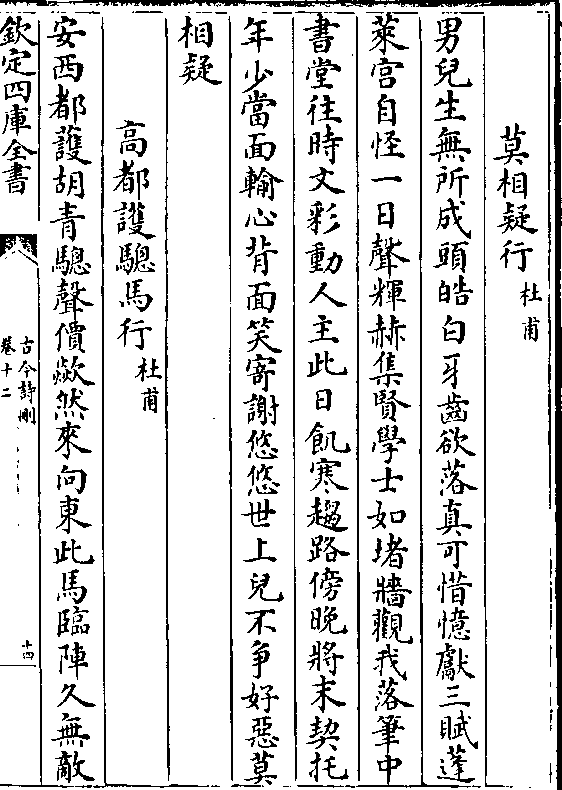 莫相疑行 杜甫
男兒生無所成頭皓白牙齒欲落真可惜憶獻三賦蓬
萊宮自怪一日聲輝赫集賢學士如堵牆觀我落筆中
書堂往時文彩動人主此日飢寒趨路傍晚將末契托
年少當面輸心背面笑寄謝悠悠世上兒不爭好惡莫
相疑
高都護驄馬行 杜甫
安西都護胡青驄聲價歘然來向東此馬臨陣久無敵
欽定四庫全書
古今詩刪
卷十二
十四